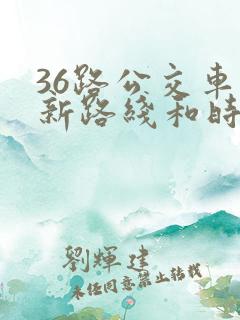 36路公交車
新路綫和時
劉輝建
未經同意禁止轉載